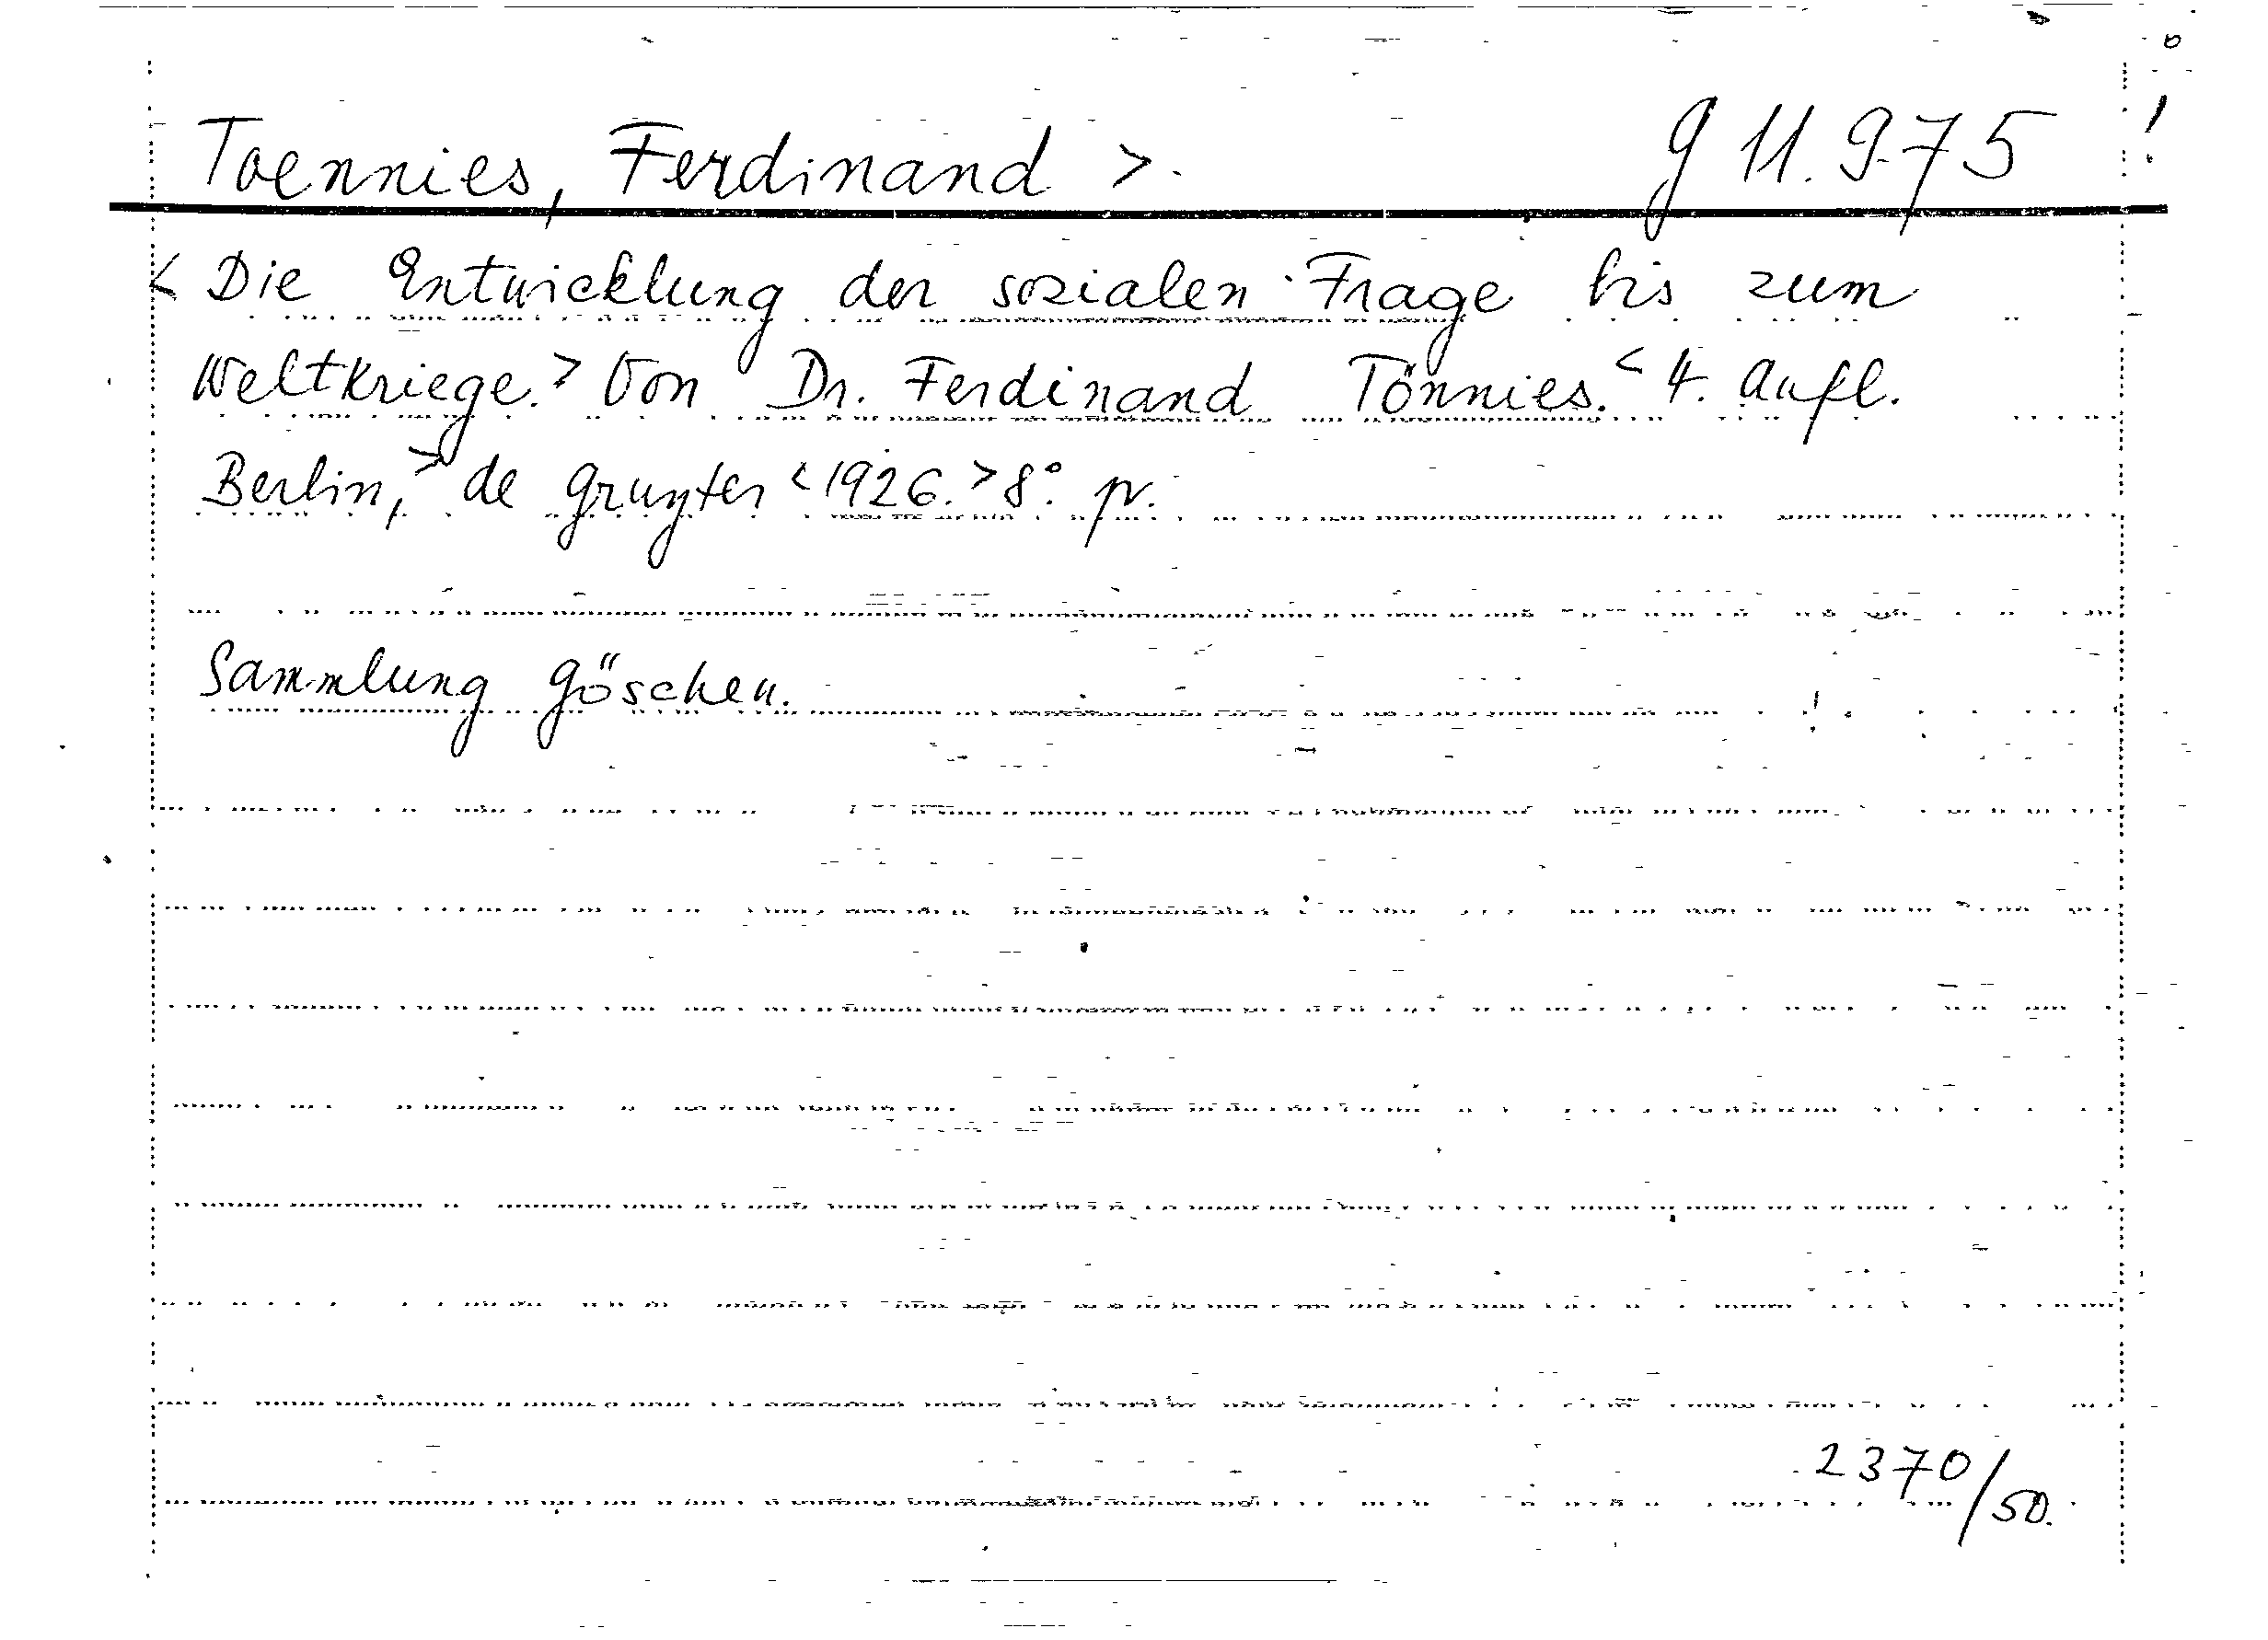 Toennies, Ferdinand >. g 11.975 !
< Die Entwicklung der sozialen Frage bis zum
Weltkriege. > Von Dr. Ferdinand Tönnies. < 4. Aufl.
Berlin, > de Gruyter < 1926. > 8°. pr.
Sammlung Göschen.
2370/50.